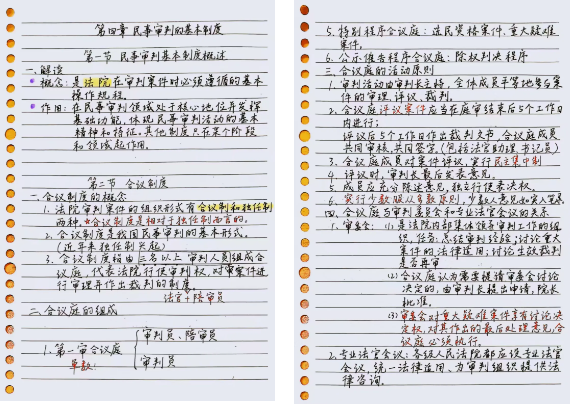 第四章 民事审判的基本制度
第一节 民事审判基本制度概述
一.解读
概念:是法院在审判案件时必须遵循的基本
操作规程。
作用:在民事审判领域处于核心地位并发挥
基础功能,体现民事审判活动的基本
精神和特征,其他制度只在某个阶段
和领域起作用。
第二节 合议制度
一.合议制度的概念
1.法院审判案件的组织形式有合议制和独任制
两种。★合议制度是相对于独任制而言的。
2.合议制度是我国民事审判的基本形式。
(近年来独任制兴起)
3.合议制度指由三名以上审判人员组成合
议庭,代表法院行使审判权,对审案件进
行审理并作出裁判的制度。
法官+陪审员
二.合议庭的组成
审判员、陪审员
1.第一审合议庭
单数
审判员
5.特别程序合议庭:选民资格案件,重大疑难
案件。
6.公示催告程序合议庭:除权判决程序
三.合议庭的活动原则
1.审判活动由审判长主持,全体成员平等地参与案
件的审理,评议,裁判。
2.合议庭评议案件应当在庭审结束后5个工作日
内进行;
评议后5个工作日作出裁判文书,合议庭成员
共同审核,共同签字(包括法官助理、书记员)
3.合议庭成员对案件评议,实行民主集中制
4.评议时,审判长最后发表意见。
5.成员应充分陈述意见,独立行使表决权。
6.实行少数服从多数原则,少数人意见如实入笔录
四.合议庭与审判委员会和专业法官会议的关系
1.审委会:(1)是法院内部集体领导审判工作的组
织,任务:总结审判经验;讨论重大
案件的法律适用;讨论生效裁判
是否再审
(2)合议庭认为需要提请审委会讨论
决定的,由审判长提出申请,院长
批准。
(3)审委会对重大疑难案件享有讨论决
定权,对其作出的最后处理意见,合
议庭必须执行。
2.专业法官会议:各级人民法院都应设专业法官
会议,统一法律适用,为审判组织提供法
律咨询。